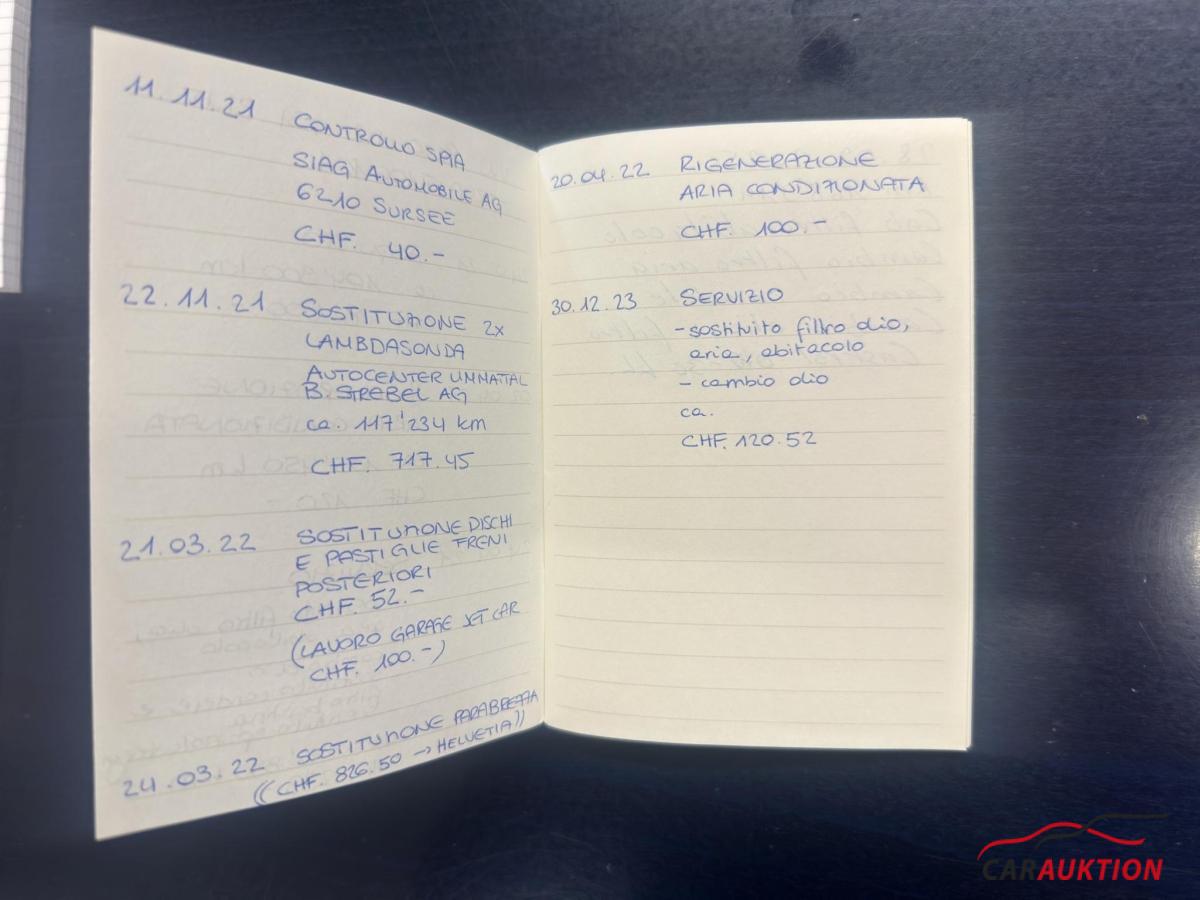 11.11.21 CONTROLLO SPIA
SIAG AUTOMOBILE AG
6210 SURSEE
CHF. 40.-
22.11.21 SOSTITUZIONE 2x
LAMBDASONDA
AUTOCENTER LIMMATTAL
B. STREBEL AG
ca. 117'234 km
CHF. 717.45
21.03.22 SOSTITUZIONE DISCHI
E PASTIGLIE FRENI
POSTERIORI
CHF. 52.-
(LAVORO GARAGE JET CAR
CHF. 100.-)
24.03.22 SOSTITUZIONE PARABREZZA
((CHF. 826.50 → HELVETIA))
20.04.22 RIGENERAZIONE
ARIA CONDIZIONATA
CHF. 100.-
30.12.23 SERVIZIO
- sostituito filtro olio,
aria, abitacolo
- cambio olio
ca.
CHF. 120.52
CARAUKTION